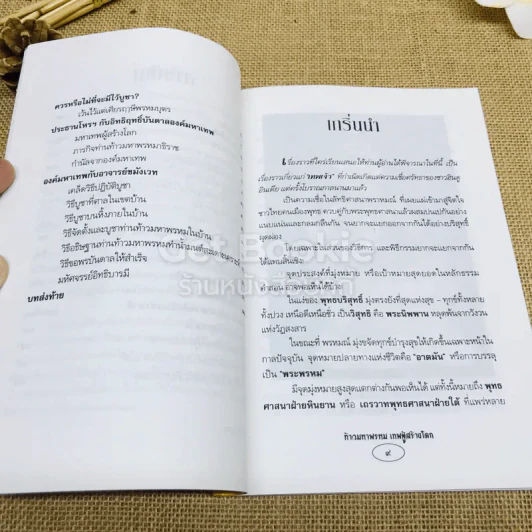 ควรหรือไม่ที่จะมีไว้บูชา?
เว้นไว้แต่เศียรฤๅษีพรหมบุตร
ประธานโหรฯ กับอิทธิฤทธิ์บันดาลองค์มหาเทพ
มหาเทพผู้สร้างโลก
ภารกิจท่านท้าวมหาพรหมาธิราช
กำนัลจากองค์มหาเทพ
องค์มหาเทพกับอาจารย์ชมังเวท
เคล็ดวิธีปฏิบัติบูชา
วิธีบูชาที่ศาลในเขตบ้าน
วิธีบูชาบนหิ้งภายในบ้าน
วิธีจัดตั้งและบูชาท่านท้าวมหาพรหมในบ้าน
วิธีอธิษฐานท่านท้าวมหาพรหม
วิธีขอพรบันดาลให้สำเร็จ
มหัศจรรย์อิทธิบารมี
บทส่งท้าย
เกริ่นนำ
เรื่องราวที่ใคร่เรียนเสนอให้ท่านผู้อ่านได้พิจารณาในทีนี้ เป็น
เรื่องราวเกี่ยวแก่ "เทพเจ้า" ที่กำเนิดเกิดแต่ความเชื่อศรัทธาของชาวฮินดู
อินเดีย แต่ครั้งโบราณกาลนานมาแล้ว
เป็นความเชื่อในลัทธิศาสนาพราหมณ์ ที่เผยแผ่เข้ามาสู่จิตใจ
ชาวไทยคนเมืองพุทธ ควบคู่กับพระพุทธศาสนาแล้วผสมปนเปกันอย่าง
แนบแน่นและกลมกลืนกัน จนยากจะแยกออกจากกันได้อย่างบริสุทธิ์
ผุดผ่อง
โดยเฉพาะในส่วนของวิธีการ และพิธีกรรมยากจะแยกจากกัน
ได้แทบสิ้นเชิง
จุดประสงค์ที่มุ่งหมาย หรือเป้าหมายสุดยอดในหลักธรรม
คำสอน อาจพอเห็นได้บ้าง
ในแง่ของ พุทธบริสุทธิ์ มุ่งตรงยังที่สุดแห่งสุข - ทุกข์ทั้งหลาย
ทั้งปวง เหนือดีเหนือชั่ว เป็นวิสุทธิ คือ พระนิพพาน หลุดพ้นจากวังวน
แห่งวัฏสงสาร
ในขณะที่ พราหมณ์ มุ่งขจัดทุกข์บำรุงสุขให้เกิดขึ้นเฉพาะหน้าใน
กาลปัจจุบัน จุดหมายปลายทางแห่งชีวิตคือ "อาตมัน" หรือการบรรลุ
เป็น "พระพรหม"
มีจุดมุ่งหมายสูงสุดแตกต่างกันพอเห็นได้ แต่ทั้งนี้หมายถึง พุทธ
ศาสนาฝ่ายหินยาน หรือ เถรวาทพุทธศาสนาฝ่ายใต้ ที่แพร่หลาย
ท้าวมหาพรหม เทพผู้สร้างโลก
๙
Get Bookie